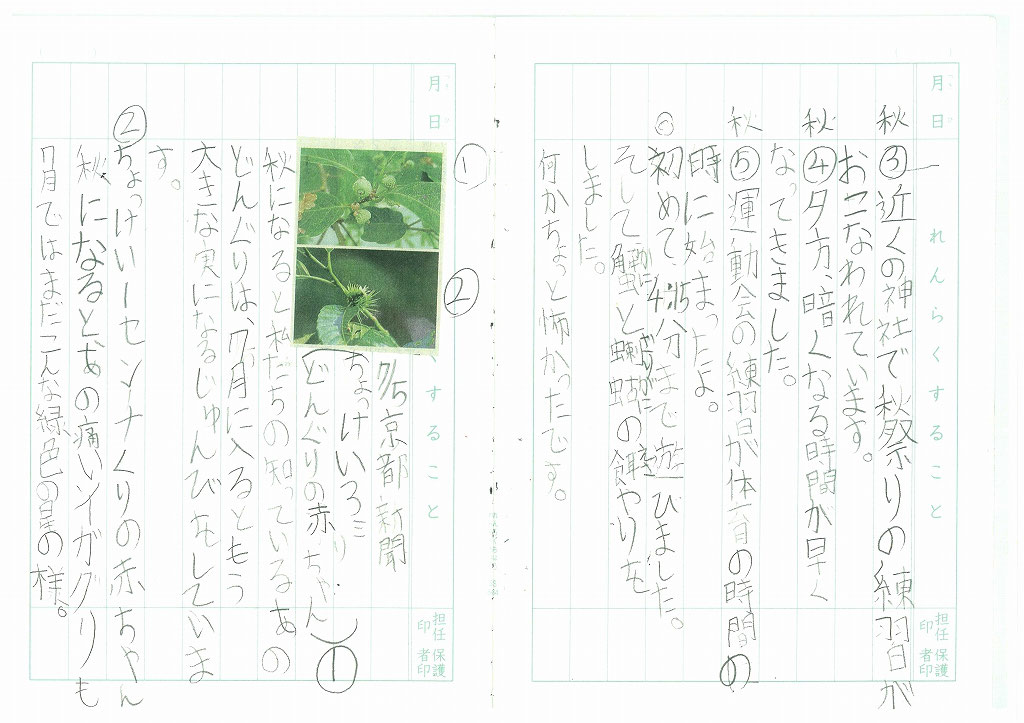 月日
れんらくすること
担任印
保護者印
秋③近くの神社で秋祭りの練習が
おこなわれています。
秋④夕方、暗くなる時間が早く
なってきました。
秋⑤運動会の練習が体育の時間の
時に始まったよ。
⑥初めて4:15分まで遊びました。
そして蟹と蝌蚪の餌やりを
しました。
何かちょっと怖かったです。
月日
すること
担任印
保護者印
①
②
7/5京都新聞
ちょっけいろミリ
(どんぐりの赤ちゃん)①
秋になると私たちの知っているあの
どんぐりは、7月に入るともう
大きな実になるじゅんびをしていま
す。
②ちょっけい1センチくりの赤ちゃん
秋になるとあの痛いイガグリも
7月ではまだこんな緑色の星の様。